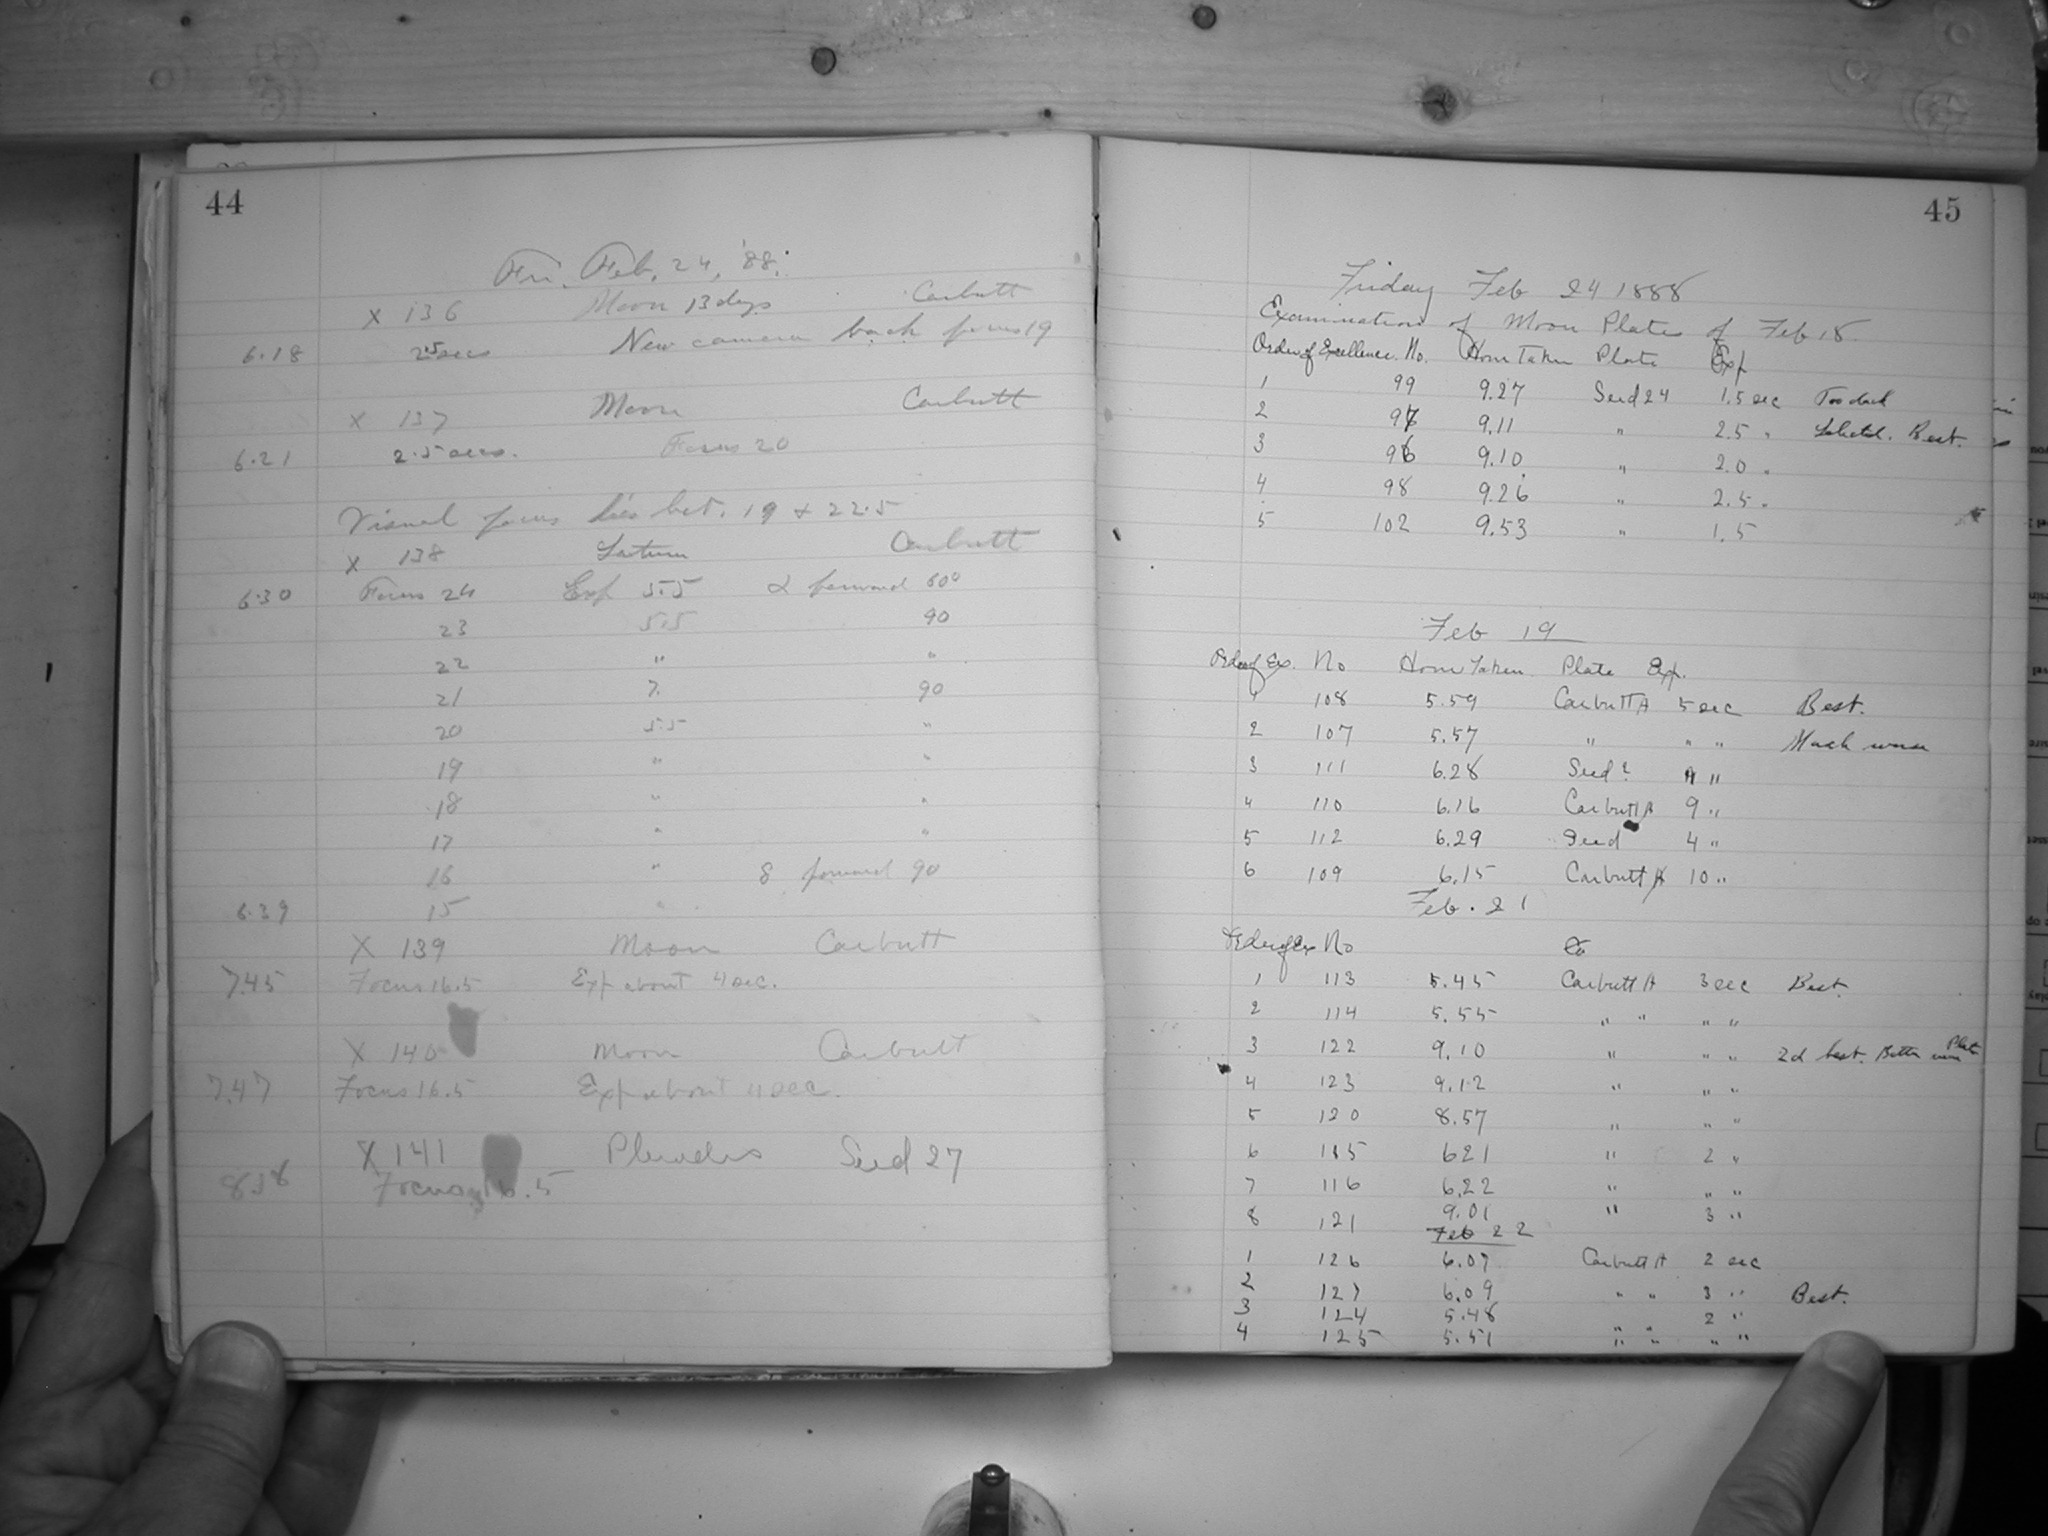 44
Fri. Feb. 24, '88.
X 136 Moon 13 days Carbutt
6.18 2.5 secs New camera back focus 19
X 137 Moon Carbutt
6.21 2.5 secs. Focus 20
Visual focus lies bet. 19 & 22.5
X 138 Saturn Carbutt
6.30 Focus 24 Exp 5.5 2 forward
23 5.5 90
22 " "
21 7. 90
20 5.5 "
19 " "
18 " "
17 " "
16 " 8 forward 90
6.39 15 "
X 139 Moon Carbutt
7.45 Focus 16.5 Exp about 4 sec.
X 140 Moon Carbutt
7.47 Focus 16.5 Exp about 4 sec.
X 141 Pleiades Seed 27
Focus 16.5
45
Friday Feb 24 1888
Examination of Moon Plates of Feb 18.
Order of Excellence. No. Hour Taken Plate Exp
1 99 9.27 Seed 24 1.5 sec Too dark
2 97 9.11 " 2.5 " Selected. Best.
3 96 9.10 " 2.0 "
4 98 9.26 " 2.5 "
5 102 9.53 " 1.5
Feb 19
Order of Ex. No Hour Taken Plate Exp.
1 108 5.59 Carbutt A 5 sec Best.
2 107 5.57 " " " Much worse
3 111 6.28 Seed ? "
4 110 6.16 Carbutt A 9 "
5 112 6.29 Seed 4 "
6 109 6.15 Carbutt A 10 "
Feb. 21
Order of Ex No
1 113 5.45 Carbutt A 3 sec Best.
2 114 5.55 " " " "
3 122 9.10 " " " 2d best. Better Plate
4 123 9.12 " " "
5 120 8.57 " " "
6 115 621 " 2 "
7 116 6.22 " " "
8 121 9.01 " 3 "
Feb 22
1 126 6.07 Carbutt A 2 sec
2 127 6.09 " " 3 " Best.
3 124 5.48 " " 2 "
4 125 5.51 " " " "